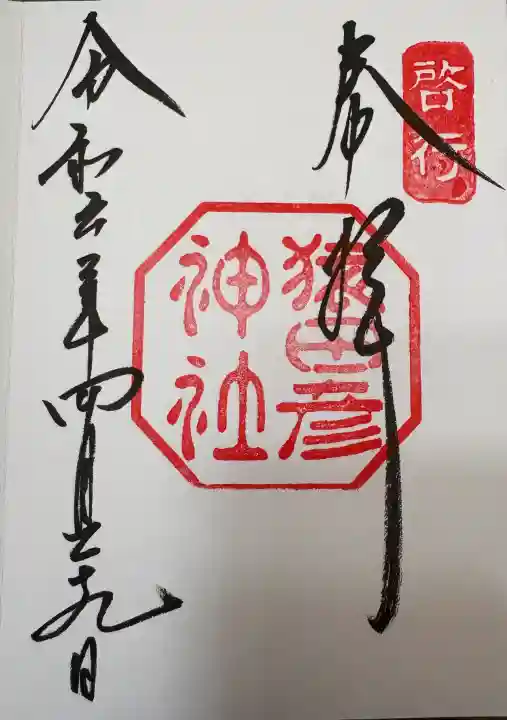 啓行
奉拝
猿田彦
神社
令和年四月二十九日